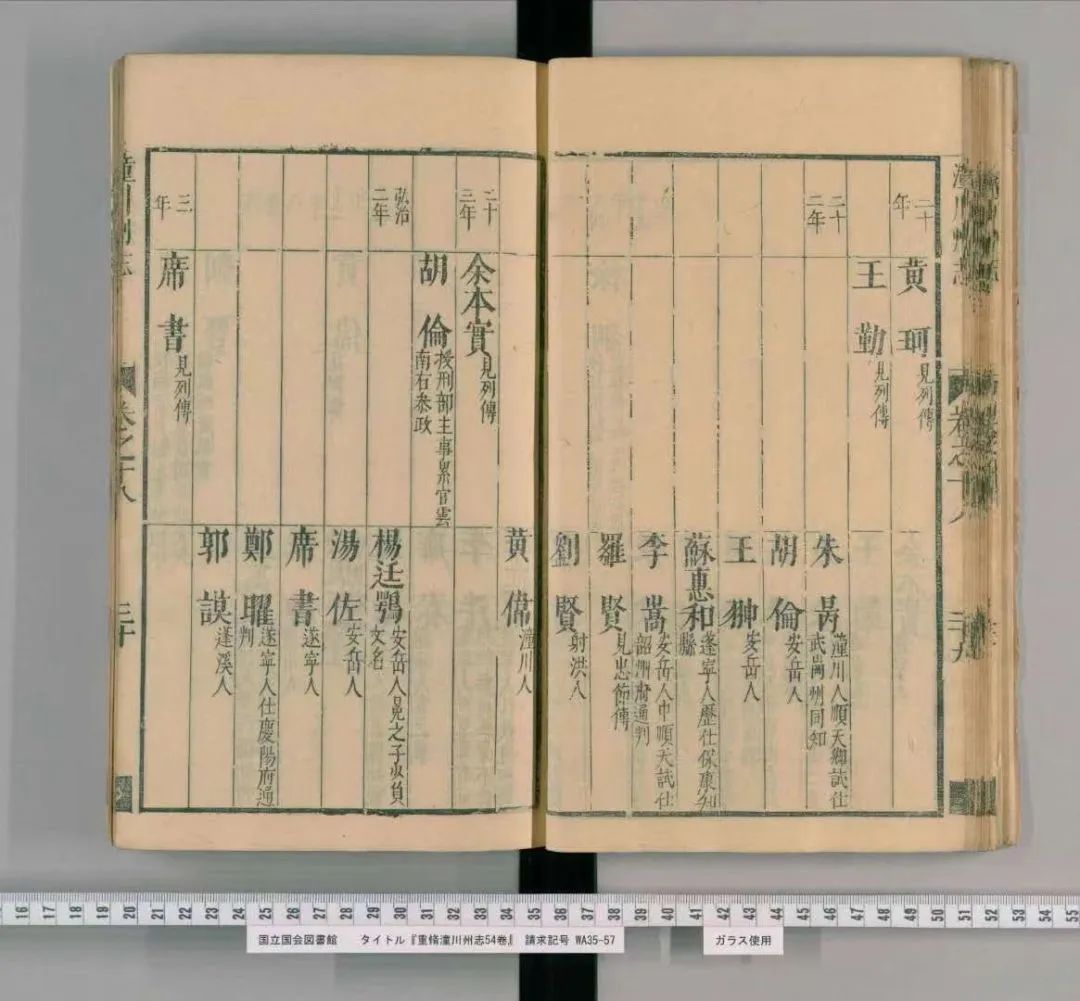 潼川州志
卷之十八
二十年
黃珂見列傳
王勤見列傳
二十二年
朱㒵潼川人順天鄉試仕武岡州同知
胡倫安岳人
王翀安岳人
蘇惠和蓬寧人歷仕保康知縣
李嵩安岳人中順天試仕韶州府通判
羅賢見忠節傳
劉賢射洪人
黃偉潼川人
二十三年
余本實見列傳
胡倫授刑部主事累官雲南右叅政
弘治二年
楊廷鶚安岳人晃之子少負文名
湯佐安岳人
席書遂寧人
鄭曜遂寧人仕慶陽府通判
郭謨蓬溪人
三年
席書見列傳
潼川州志
卷之十八
三十
国立国会図書館 タイトル『重脩潼川州志54巻』 請求記号 WA35-57
ガラス使用
16 17 18 19 20 21 22 23 24 25 26 27 28 29 30 31 32 33 34 35 36 37 38 39 40 41 42 43 44 45 46 47 48 49 50 51 52 53 54 55